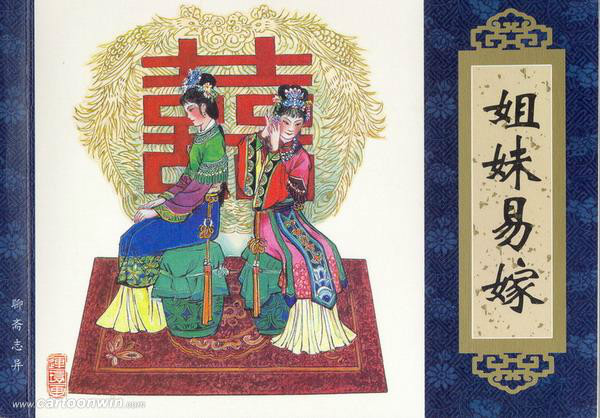 姐妹易嫁
聊斋志异
囍
www.cartoonwin.com